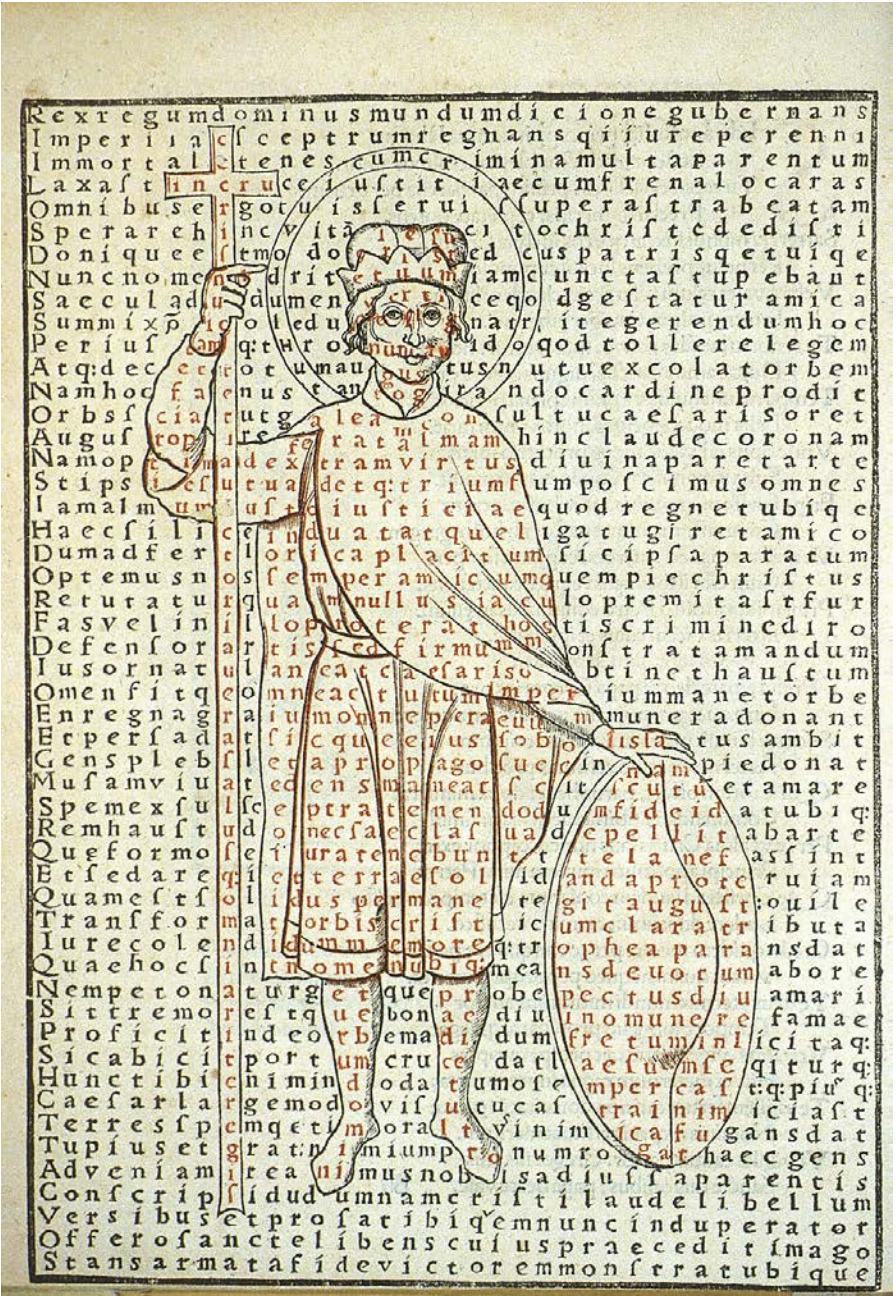 Rexregumdominusmundumdicionegubernans
Imperiiacſceptrumregnansqiiureperenni
Immortaletenescumcriminamultaparentum
Laxaſtincruceiuſtitiaecumfrenalocaras
Omnibusergotuisſeruiſſuperaſtrabeatam
Sperarehincvitāieſucitochriſtedediſti
Doniqueeſtmodo edcuspatrisqetuiqe
Nuncnomen dritetuumiamcunctaſtupebant
Saeculadu dumenvertíceqodgeſtaturamica
Summixp̄icoledu natritegerendumhoc
Periuſtamq:thronum idoqodtollerelegem
Atq:decettotumauguſtusnutuexcolatorbem
Namhocfaenustantogirandocardineprodit
Orbsſciatutgaleaconſultucaeſarisoret
Auguſtopireferatalmamhinclaudecoronam
Namoptimadextramvirtusdiuinaparetarte
Stipsieſutuadetq:triumſumpoſcimusomnes
Iamalmumuſteiuſticiaequodregnetubiqe
Haecſiliceinduatatqueligatugiretamico
Dumadfertloricaplacitumſicipſaparatum
Optemusnosſemperamicumquempiechriſtus
Retutaturquamnulluſiaculopremitaſtfur
Faſvelinilloproterathoſtiscriminediro
Defenſorartisſedfirmummonſtratamandum
Iusornatulancatcaeſarisobtinethauſtum
Omenfitqeomneactutumimperiummanetorbe
Enregnagraiumomnepcraeutummuneradonant
Etperſadatſicqueeiusſoboliſtatusambit
Gensplebſletapropagoſuecinnampiedonat
Muſamviuatedensmaneatſcitſcutūetamare
Spemexſulſceptratenendodumfideidatubiq:
Remhauſtudonecſaeclaſuadepellitabarte
Queformoſeiuratenebunttelanefaſſint
Etſedareqietterraeſolidandaproteruiam
Quameſtſoliduspermanetegitauguſt:ouile
Tranſformatorbiscriſticumclaratributa
Iurecolendidummemoreq:tropheaparansdat
Quaehocſintnomenubiq:meansdeuotumabore
Nempetonaturgetqueprobepectusdiuamari
Sittremoreſtquebonaediuinomunerefamae
Proficitindeorbemadidumfretuminlicitaq:
Sicabicitportumcrucedatlaeſumſeqiturq:
Hunctibienimindodatumoſempercaſt:q:piuſq:
Caeſarlargemodoviſutucaſtrainimiciaſt
Terresſpemqetimoraltvinimicafūgansdat
Tupiusetgrat:nimiumptonumrogathaecgens
Adveniamiteanimusnobisadiuſſaparentis
Conſcripſidudumnamcriſtilaudelibellum
Verſibusetproſatibiqemnuncinduperator
Offeroſanctelibenscuiuspraeceditimago
Stansarmatafidevictoremmonſtratubique